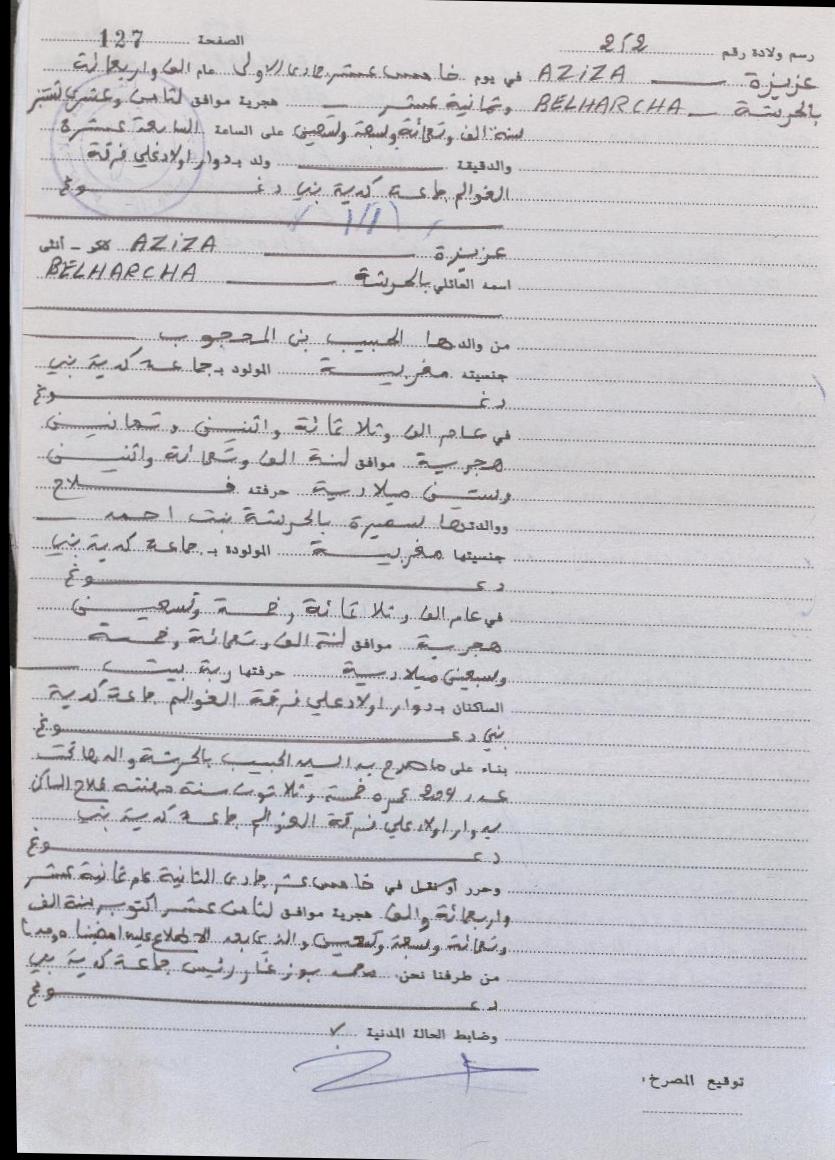 رسم ولادة رقم 252 الصفحة 127
عزيزة AZIZA في يوم خامس عشر جمادى الاولى عام الف واربعمائة
بالحرشة BELHARCHA وثمانية عشر هجرية موافق لثامن وعشرين شتنبر
لسنة الف وتسعمائة وسبعة وتسعين على الساعة السابعة عشرة
والدقيقة ولد بدوار اولاد علي فرقة
الغوالم جماعة كدية بني دغوغ
عزيزة AZIZA ذكر - أنثى
اسمه العائلي بالحرشة BELHARCHA
من والدها الحبيب بن المحجوب
جنسيته مغربية المولود بـ جماعة كدية بني
دغوغ
في عام الف وثلاثمائة واثنين وثمانين
هجرية موافق لسنة الف وتسعمائة واثنين
وستين ميلادية حرفته فلاح
ووالدتها سميرة بالحرشة بنت احمد
جنسيتها مغربية المولودة بـ جماعة كدية بني
دغوغ
في عام الف وثلاثمائة وخمسة وتسعين
هجرية موافق لسنة الف وتسعمائة وخمسة
وسبعين ميلادية حرفتها ربة بيت
الساكنان بـ دوار اولاد علي فرقة الغوالم جماعة كدية
بني دغوغ
بناء على ما صرح به السيد الحبيب بالحرشة والدها تحت
عدد 209 عمره خمسة وثلاثون سنة مهنته فلاح الساكن
بدوار اولاد علي فرقة الغوالم جماعة كدية بني
دغوغ
وحرر أو نقل في خامس عشر جمادى الثانية عام ثمانية عشر
واربعمائة والف هجرية موافق لثامن عشر اكتوبر سنة الف
وتسعمائة وسبعة وتسعين والذي بعد الاطلاع عليه امضينا
من طرفنا نحن محمد بوزغار رئيس جماعة كدية بني
دغوغ
وضابط الحالة المدنية
توقيع المصرح،